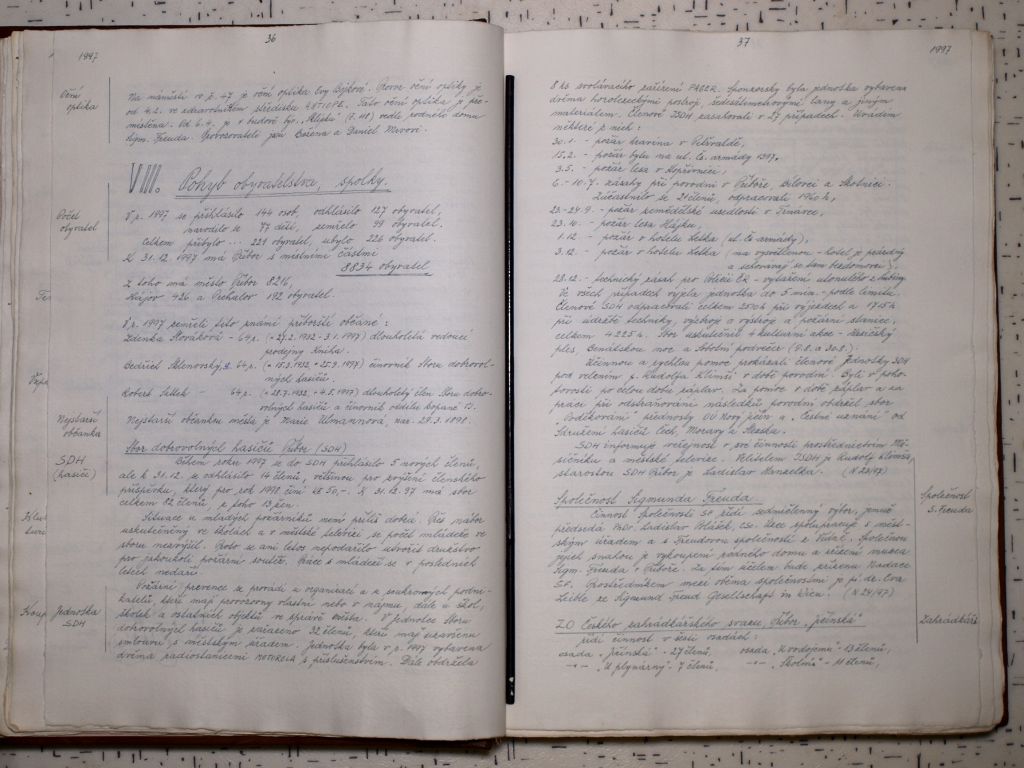 36
1997
Oční optika
Na náměstí v č. 47 je oční optika Evy Býkové. Provoz oční optiky je
od 4.2. ve zdravotním středisku
místěna. Od 6.4. je v budově býv. (č. 118) vedle rodného domu
Sigm. Freuda. Provozovateli jsou Božena a Daniel
VIII. Pohyb obyvatelstva, spolky.
Počet obyvatel
V r. 1997 se přihlásilo 144 osob, odhlásilo 127 obyvatel,
narodilo se 77 dětí, zemřelo 99 obyvatel.
Celkem přibylo ... 221 obyvatel, ubylo 226 obyvatel.
K 31.12. 1997 má Příbor s místními částmi
8834 obyvatel
Z toho má město Příbor 8216,
Hájov 426 a Prchalov 192 obyvatel.
V r. 1997 zemřeli tito známí příborští občané:
Zdenka Horáková - 64 r. dlouholetá vedoucí
prodejny kniha.
Bedřich Sklenovský, 64 r. činovník Sboru dobrovol-
ných hasičů.
Robert - 64 r. dlouholetý člen Sboru dobro-
volných hasičů a činovník oddílu kopané
Nejstarší občanka
Nejstarší občankou města je Marie Ulmannová, nar. 29.3. 1898.
SDH (hasiči)
Sbor dobrovolných hasičů Příbor (SDH)
Během roku 1997 se do SDH přihlásilo 5 nových členů,
ale k 31.12. se odhlásilo 14 členů, většinou pro zvýšení členského
příspěvku, který pro rok 1998 činí Kč 50,-. K 31.12. 97 má sbor
celkem 82 členů, z toho 13 žen.
Situace u mladých požárníků není příliš dobrá. Přes nábor
uskutečněný ve školách a v městské televizi se počet mládeže ve
sboru nezvýšil. Proto se ani letos nepodařilo utvořit družstvo
pro jakoukoli požární soutěž. Práce s mládeží se v posledních
letech nedaří.
Jednotka SDH
Požární prevence se provádí u organizací a u soukromých podni-
katelů, kteří mají provozovny vlastní nebo v nájmu, dále u škol,
školek a ostatních objektů ve správě města. V Jednotce Sboru
dobrovolných hasičů je zařazeno 32 členů, kteří mají uzavřenu
smlouvu s městským úřadem. Jednotka byla v r. 1997 vybavena
dvěma radiostanicemi MOTOROLA s příslušenstvím. Dále obdržela
37
1997
8 ks svolávacího zařízení PAGER. Sponzorsky byla jednotka vybavena
dvěma horolezeckými postroji, šedesátimetrovými lany a jiným
materiálem. Členové JSDH zasahovali v 27 případech. Uvádím
některé z nich:
30.1. - požár kravína v Petřvaldě,
15.2. - požár bytu na ul. čs. armády 1397.
3.5. - požár lesa v Kopřivnici,
6.-10.7. zásahy při povodni v Příboře, Bílovci a Skotnici.
Zúčastnilo se 24 členů, odpracovali 1960 h,
23.-24.9. - požár zemědělské usedlosti v Trnávce,
23.10. - požár lesa Hájku,
1.12. - požár v hotelu Letka (ul. čs. armády),
3.12. - požár v hotelu Letka (na vysvětlenou - hotel je prázdný
a schovávají se tam bezdomovci),
28.12. - technický zásah pro Policii ČR - vytažení utonulého z
Ve všech případech vyjela jednotka do 5 min. - podle limitu.
Členové SDH odpracovali celkem 2500 h při výjezdech a
při údržbě techniky, výzbroje a výstroje a požární stanice,
celkem Sbor uskutečnil 4 kulturní akce - Hasičský
ples, Benátskou noc a Sobotní podvečer (9.8. a 30.8.).
Účinnou a rychlou pomoc prokázali členové Jednotky SDH
pod velením p. Rudolfa Klimši v době povodní. Byli v poho-
tovosti po celou dobu záplav. Za pomoc v době záplav a za
práci při odstraňování následků povodní obdržel sbor
"Poděkování" přednosty OÚ Nový Jičín a "Čestné uznání" od
Sdružení hasičů Čech, Moravy a Slezska.
SDH informuje veřejnost o své činnosti prostřednictvím Mě-
síčníku a městské televize. Velitelem JSDH je Rudolf Klimša,
starostou SDH Příbor je Ladislav Manzelka. (N 23/97)
Společnost S. Freuda
Společnost Sigmunda Freuda
Činnost Společnosti SF řídí sedmičlenný výbor, jemuž
předsedá MUDr. Ladislav Polášek, CSc. Úzce spolupracuje s měst-
ským úřadem a s Freudovou společností z Vídně. Společnou
jejich snahou je vykoupení rodného domu a zřízení muzea
Sigm. Freuda v Příboře. Za tím účelem bude zřízena Nadace
S.F. Prostředníkem mezi oběma společnostmi je pí dr. Eva
Laible ze Sigmund Freud Gesellschaft in Wien. (N 24/97)
Zahrádkáři
ZO Českého zahrádkářského svazu Příbor "Jičínská"
řídí činnost v šesti osadách:
osada "Jičínská" - 27 členů, osada "U vodojemu" 13 členů,
-"- "U plynárny" 7 členů, -"- "Školní" - 11 členů,